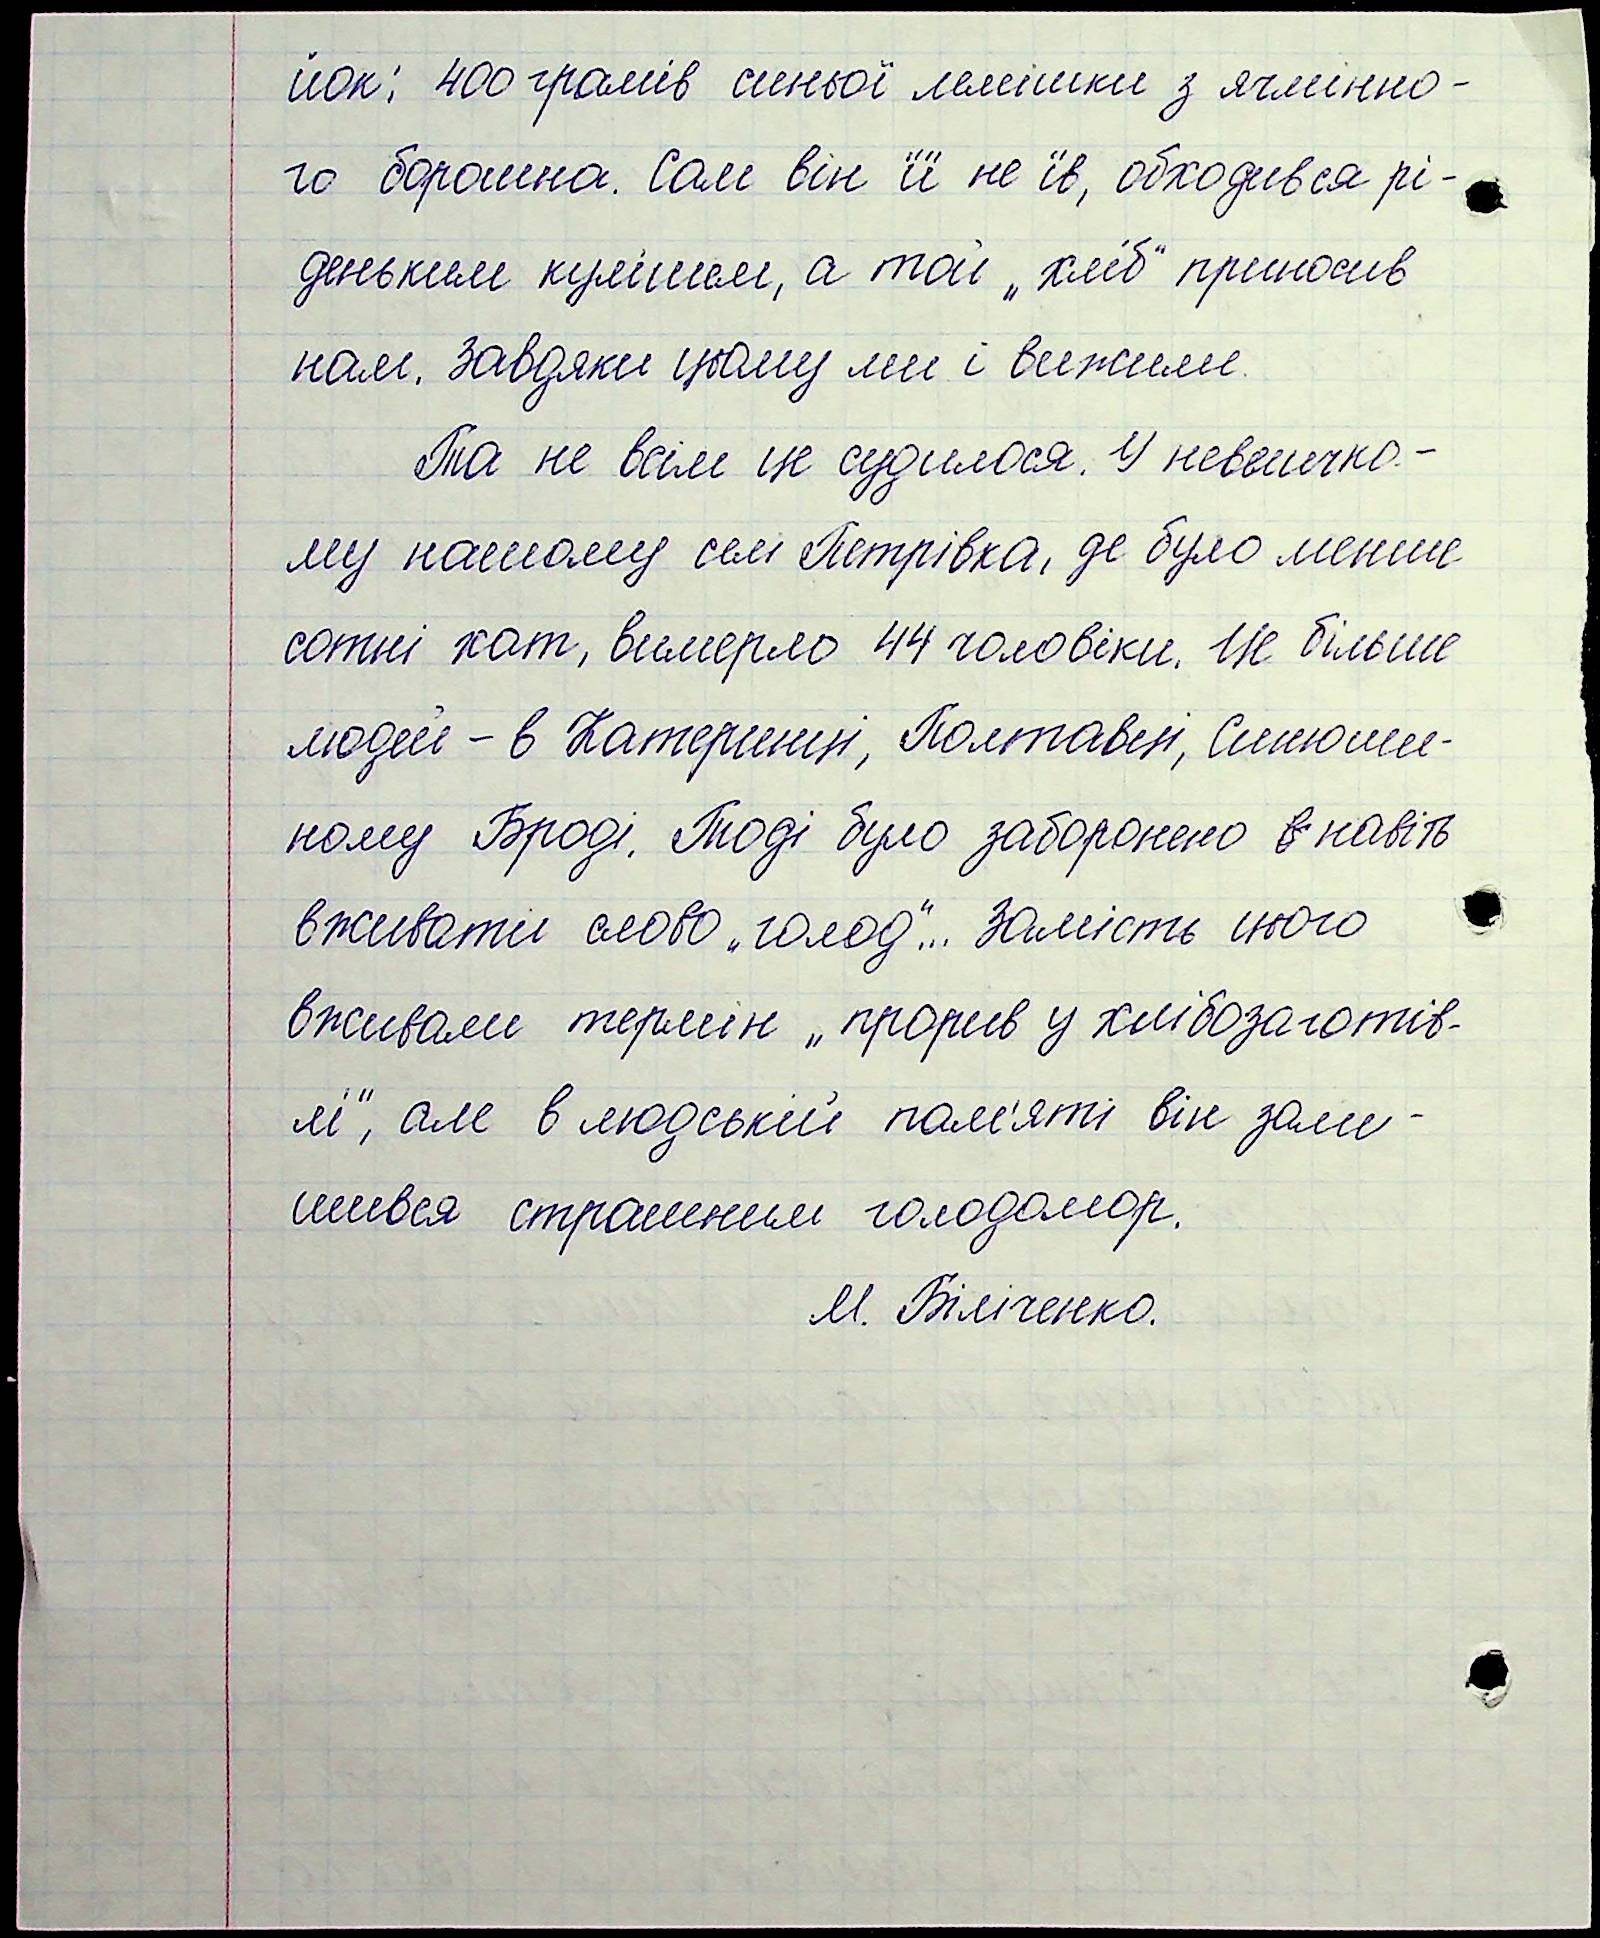 йок: 400 грамів синьої лемішки з ячмінно-
го борошна. Сам він її не їв, обходився рі-
деньким кулішем, а той „хліб" приносив
нам. Завдяки цьому ми і вижили.
Та не всім це судилося. У невеличко-
му нашому селі Петрівка, де було менше
сотні хат, вимерло 44 чоловіки. Ще більше
людей - в Катеринці, Полтавці, Синюши-
ному Броді. Тоді було заборонено навіть
вживати слово „голод"... Замість цього
вживали термін „прорив у хлібозаготів-
лі", але в людській пам'яті він зали-
шився страшним голодомор.
М. Біліченко.